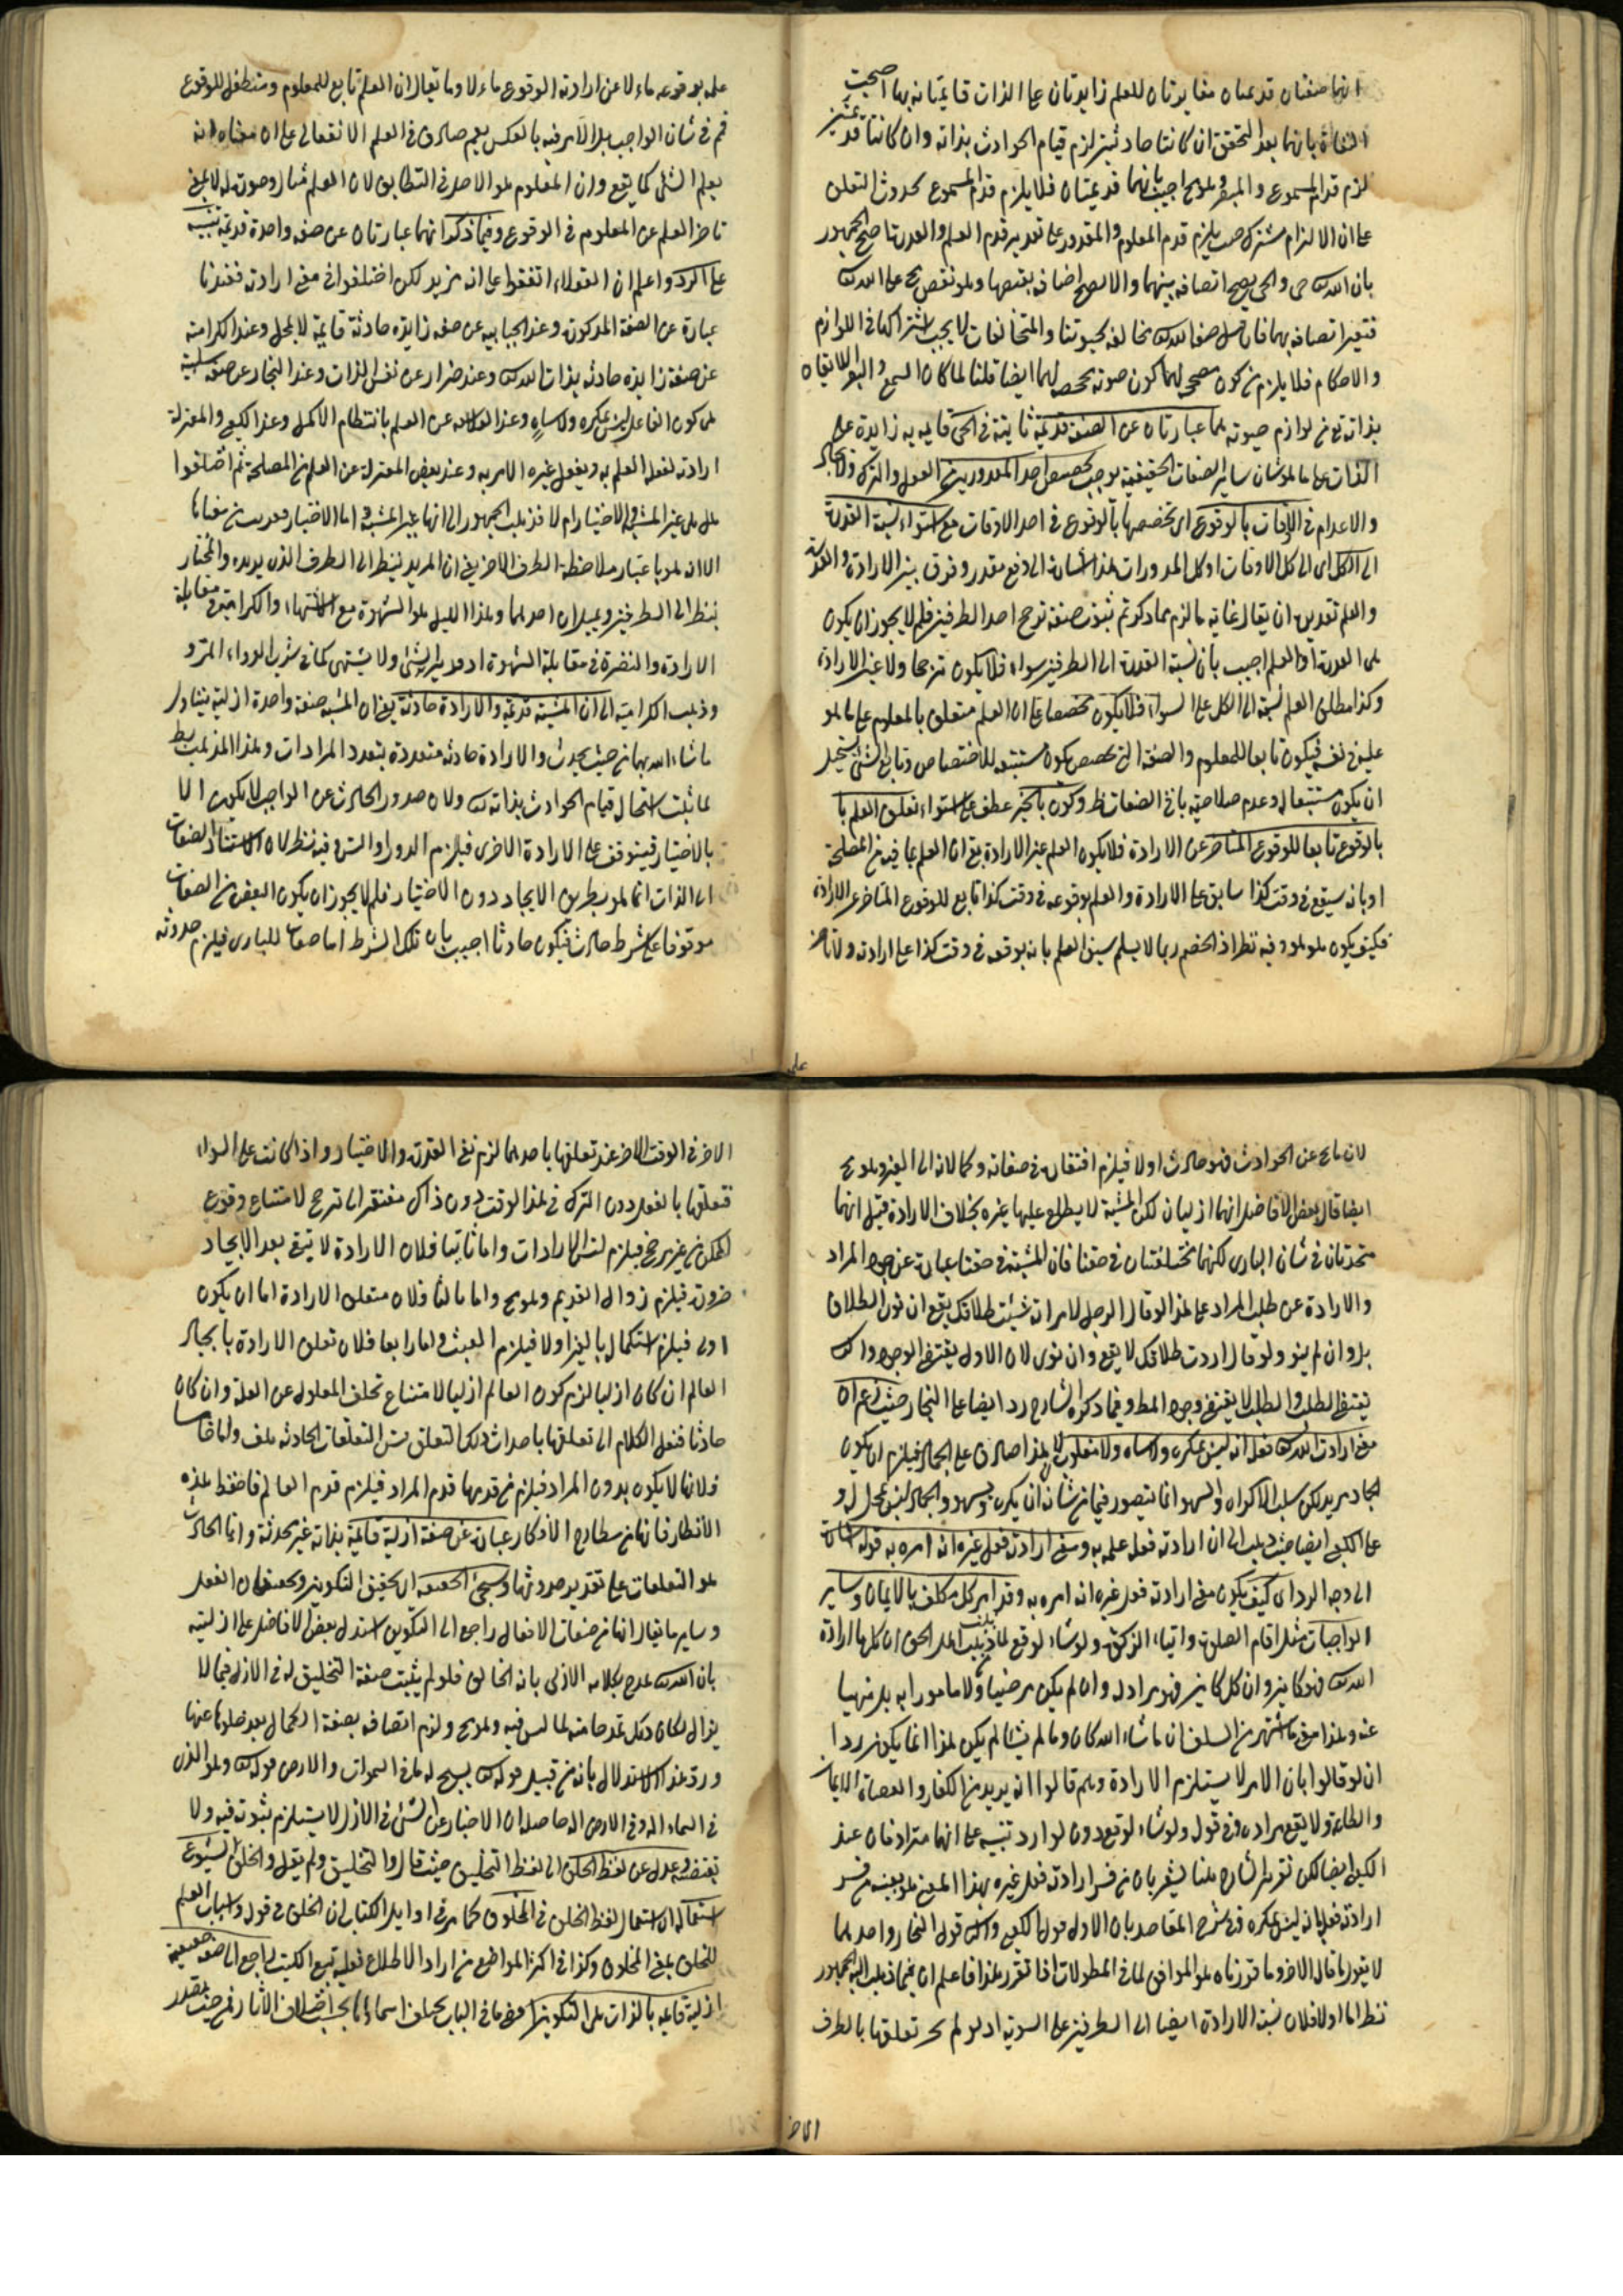 انهما صفتان قديمتان مغايرتان للعلم زايدتان على الذات قايمتان بها احتجت
النفاة بانهما بعد التحقق ان كانتا حادثتين لزم قيام الحوادث بذاته وان كانتا قديمتين
لزم قدم المسموع والمبصر وهو مح اجيب بانهما قديمتان فلا يلزم قدم المسموع لحدوث التعلق
على ان الالزام مشترك حيث يلزم قدم المعلوم والمقدور على تقدير قدم العلم والقدرة احتج الجمهور
بان الله حى والحى يصح اتصافه بهما والا لصح اتصافه بنقيضها وهو نقص مح على الله
فتعين اتصافه بهما فان قيل صفات الله مخالفة لحيوتنا والمتخالفات لا يجب اشتراكها فى اللوازم
والاحكام فلا يلزم من كون مصححة لهما كون حيوته مصححة لهما ايضا قلنا لما كان السمع والبصر اللايقان
بذاته تع من لوازم حيوته هما عبارتان عن الصفة قديمة ثابتة فى الحى قايمة به زايدة على
الذات على ما هو شان ساير الصفات الحقيقية يوجب تخصيص احد المقدورين من الفعل والترك والايجاد
والاعدام فى الاوقات بالوقوع اى تخصيصها بالوقوع فى احد الاوقات مع استواء نسبة القدرة
الى الكل اى الى كل الاوقات او كل المقدورات هذا اشارة الى دفع مقدر وفرق بين الارادة والقدرة
والعلم تقديره ان يقال غاية ما لزم مما ذكرتم ثبوت صفة ترجح احد الطرفين فلم لا يجوز ان يكون
هى القدرة او العلم اجيب بان نسبة القدرة الى الطرفين سواء فلا يكون مرجحا ولا عين الارادة
وكذا مطلق العلم نسبة الى الكل على السواء فلا يكون مخصصا على ان العلم متعلق بالمعلوم على ما هو
عليه فى نفسه فيكون تابعا للمعلوم والصفة التى تخصص يكون مستتبعة للاختصاص وتابع الشئ يستحيل
ان يكون مستتبعا له وعدم صلاحية باقى الصفات ظ وكون بالجر عطف على استواء تعلق العلم با
بالوقوع تابعا للوقوع المتاخر عن الارادة فلا يكون العلم عين الارادة يعنى ان العلم بما فيه من المصلحة
او بانه سيقع فى وقت كذا سابق على الارادة والعلم بوقوعه فى وقت كذا تابع للوقوع المتاخر عن الارادة
فكيف يكون هو هو وفيه نظر اذ الخصم ربما لا يسلم سبق العلم بانه يوقعه فى وقت كذا على ارادته ولا تاخر
على
علمه بوقوعه ماءلا عن ارادته الوقوع ماءلا وما يقال ان العلم تابع للمعلوم ومتطفل للوقوع
فمم فى شان الواجب بل الامر فيه بالعكس نعم صادق فى العلم الانفعالى على ان معناه انه
يعلم الشئ كما يقع وان المعلوم هو الاصل فى التطابق لان العلم مثال وصورة له لا بمعنى
تاخر العلم عن المعلوم فى الوقوع وفيما ذكر انهما عبارتان عن صفة واحدة قديمة تنبيه
على الرد واعلم ان العقلاء اتفقوا على انه مريد لكن اختلفوا فى معنى ارادته فعندنا
عبارة عن الصفة المذكورة وعند الجبائية عن صفة زايدة حادثة قايمة لا بمحل وعند الكرامية
عن صفة زايدة حادثة بذات الله وعند ضرار عن نفس الذات وعند النجار عن صفة سلبية
هى كون الفاعل ليس بمكره ولا ساه وعند الفلاسفة عن العلم بانتظام الاكمل وعند الكعبى والمعتزلة
ارادته لفعله العلم به ويفعل غيره الامر به وعند بعض المعتزلة عن العلم من المصلحة ثم اختلفوا
هل هى عين المشية والاختيار ام لا فذهب الجمهور الى انها عين المشية واما الاختيار فقريب من معناها
الا انه هو باعتبار ملاحظة الطرف الاخر يعنى ان المريد ينظر الى الطرف الذى يريده والمختار
ينظر الى الطرفين ويميل الى احدهما وهذا الميل هو الشهوة مع اشتهاء والكراهة فى مقابلة
الارادة والنفرة فى مقابلة الشهوة اذ قد يراد الشئ ولا يشتهى كما فى شرب الدواء المر و
وذهب الكرامية الى ان المشية قديمة والارادة حادثة يعنى ان المشية صفة واحدة ازلية يتناول
ماشاء الله بها من حيث يحدث والارادة حادثة متعددة بتعدد المرادات وهذا المذهب بط
لما ثبت استحالة قيام الحوادث بذاته ولان صدور الحادث عن الواجب لا يكون الا
بالاختيار فيتوقف على الارادة الاخرى فيلزم الدور او التس وفيه نظر لان استناد الصفات
الى الذات انما هو بطريق الايجاب دون الاختيار فلم لا يجوز ان يكون البعض من الصفات
موقوفا على شرط حادث فيكون حادثا اجيب بان تلك الشرط اما صفات للبارى فيلزم حدوثه
لان ما مح عن الحوادث فهو حادث اولا فيلزم افتقاره فى صفاته وكمالاته الى الغير وهو مح
ايضا قال بعض الافاضل انهما ازليان لكن المشية لا يطلع عليها غيره بخلاف الارادة قيل انهما
متحدتان فى شان البارى لكنهما مختلفتان فى حقنا فان المشية فى حقنا عبارة عن وجود المراد
والارادة عن طلب المراد على هذا لو قال الرجل لامراته شيئت طلاقك يقع ان نوى الطلاق
بل وان لم ينو ولو قال اردت طلاقك لا يقع وان نوى لان الاول يقتضى الوجود والثانى
يقتضى الطلب والطلب لا يقتضى وجود المط وفيما ذكره الشارح رد ايضا على النجار حيث زعم ان
معنى ارادة الله فعله انه ليس بمكره ولا ساه ولا مغلوب لا هذا صادق على الجماد فيلزم ان يكون
الجماد مريد لكن سلب الاكراه والسهو انما يتصور فيما من شانه ان يكره ويسهو والجماد ليس بمحل له و
على الكعبى ايضا حيث ذهب الى ان ارادته فعله علمه به ومعنى ارادته فعل غيره انه امره به قوله اشارة
الى وجه الرد اى كيف يكون معنى ارادته فعل غيره انه امره به وقد امر كل مكلف بالايمان وساير
الواجبات مثل اقام الصلوة وايتاء الزكوة ولو شاء لوقع لما ذهب اهل الحق ان كل ما اراده
الله فهو كاين وان كل كاين فهو مراد له وان لم يكن مرضيا ولا مامورا به بل منهيا
عنه وهذا معنى ما اشتهر من السلف ان ماشاء الله كان وما لم يشا لم يكن هذا انما يكون ردا
ان لو قالوا بان الامر لا يستلزم الارادة وهم قالوا انه يريد من الكفار والعصاة الايمان
والطاعة ولا يقع مراده وفى قوله ولو شاء لوقع دون لو اراد تنبيه على انهما مترادفان عند
الكعبى ايضا لكن تقرير الشارح هنا يشعر بان من فسر ارادته فعل غيره بهذا المعنى هو بعينه من فسر
ارادته فعله بانه ليس بمكره وفى شرح المقاصد بان الاول قول الكعبى والثانى قول النجار واحدهما
لا يقول بما قال الاخر وما قررناه هو الموافق لما فى المطولات اذا تقرر هذا فاعلم ان فيما ذهب اليه الجمهور
نظرا اما اولا فلان نسبة الارادة ايضا الى الطرفين على السوية اذ لو لم يجز تعلقها بالطرف
الاخر
الاخر فى الوقت الاخر عند تعلقها باحدهما لزم نفى القدرة والاختيار واذا كانت على السواء
فتعلقها بالفعل دون الترك فى هذا الوقت دون ذاك مفتقر الى مرجح لامتناع وقوع
الممكن من غير مرجح فيلزم تس الارادات واما ثانيا فلان الارادة لا تبقى بعد الايجاد
ضرورة فيلزم زوال القديم وهو مح واما ثالثا فلان متعلق الارادة اما ان يكون
اولى فيلزم استكماله بالغير اولا فيلزم العبث واما رابعا فلان تعلق الارادة بايجاد
العالم ان كان ازليا لزم كون العالم ازليا لامتناع تخلف المعلول عن العلة وان كان
حادثا فننقل الكلام الى تعلقها باحداث ذلك التعلق وتس التعلقات الحادثة خلف واما خامسا
فلانها لا يكون بدون المراد فيلزم من قدمها قدم المراد فيلزم قدم العالم فاحفظ هذه
الانظار فانها من مطارح الافكار عبارة عن صفة ازلية قايمة بذاته غير محدثة وانما الحادث
هو التعلقات على تقدير حدوثها وسيجئ الحقيقة اى تحقيق التكوين وتحقيق ان الفعل
وساير ما يقال انها من صفات الافعال راجع الى التكوين استدل بعض الافاضل على ازليته
بان الله مدح بكلامه الازلى بانه الخالق فلو لم يثبت صفة التخليق له فى الازل فيما لا
يزال لكان ذلك تمدحا منه لما ليس فيه وهو مح ولزم اتصافه بصفة الكمال بعد خلوه عنها
ورد هذا الاستدلال بانه من قبيل قوله يسبح له ما فى السموات والارض قوله وهو الذى
فى السماء اله وفى الارض اله حاصله ان الاخبار عن الشئ فى الازل لا يستلزم ثبوته فيه ولا
يقتضيه وعدل عن لفظ الخلق الى لفظ التخليق حيث قال والتخليق ولم يقل والخلق لشيوع
استعماله اى استعمال لفظ الخلق فى المخلوق كما مر فى اوايل الكتاب ان الخلق فى قوله واسباب العلم
للخلق بمعنى المخلوق وكذا فى اكثر المواضع من اراد الاطلاع فعليه تتبع الكتب راجع الى صفة حقيقية
ازلية قايمة بالذات هى التكوين ما فى الباب يختلف اسماؤها بحسب اختلاف الاثار فمن حيث